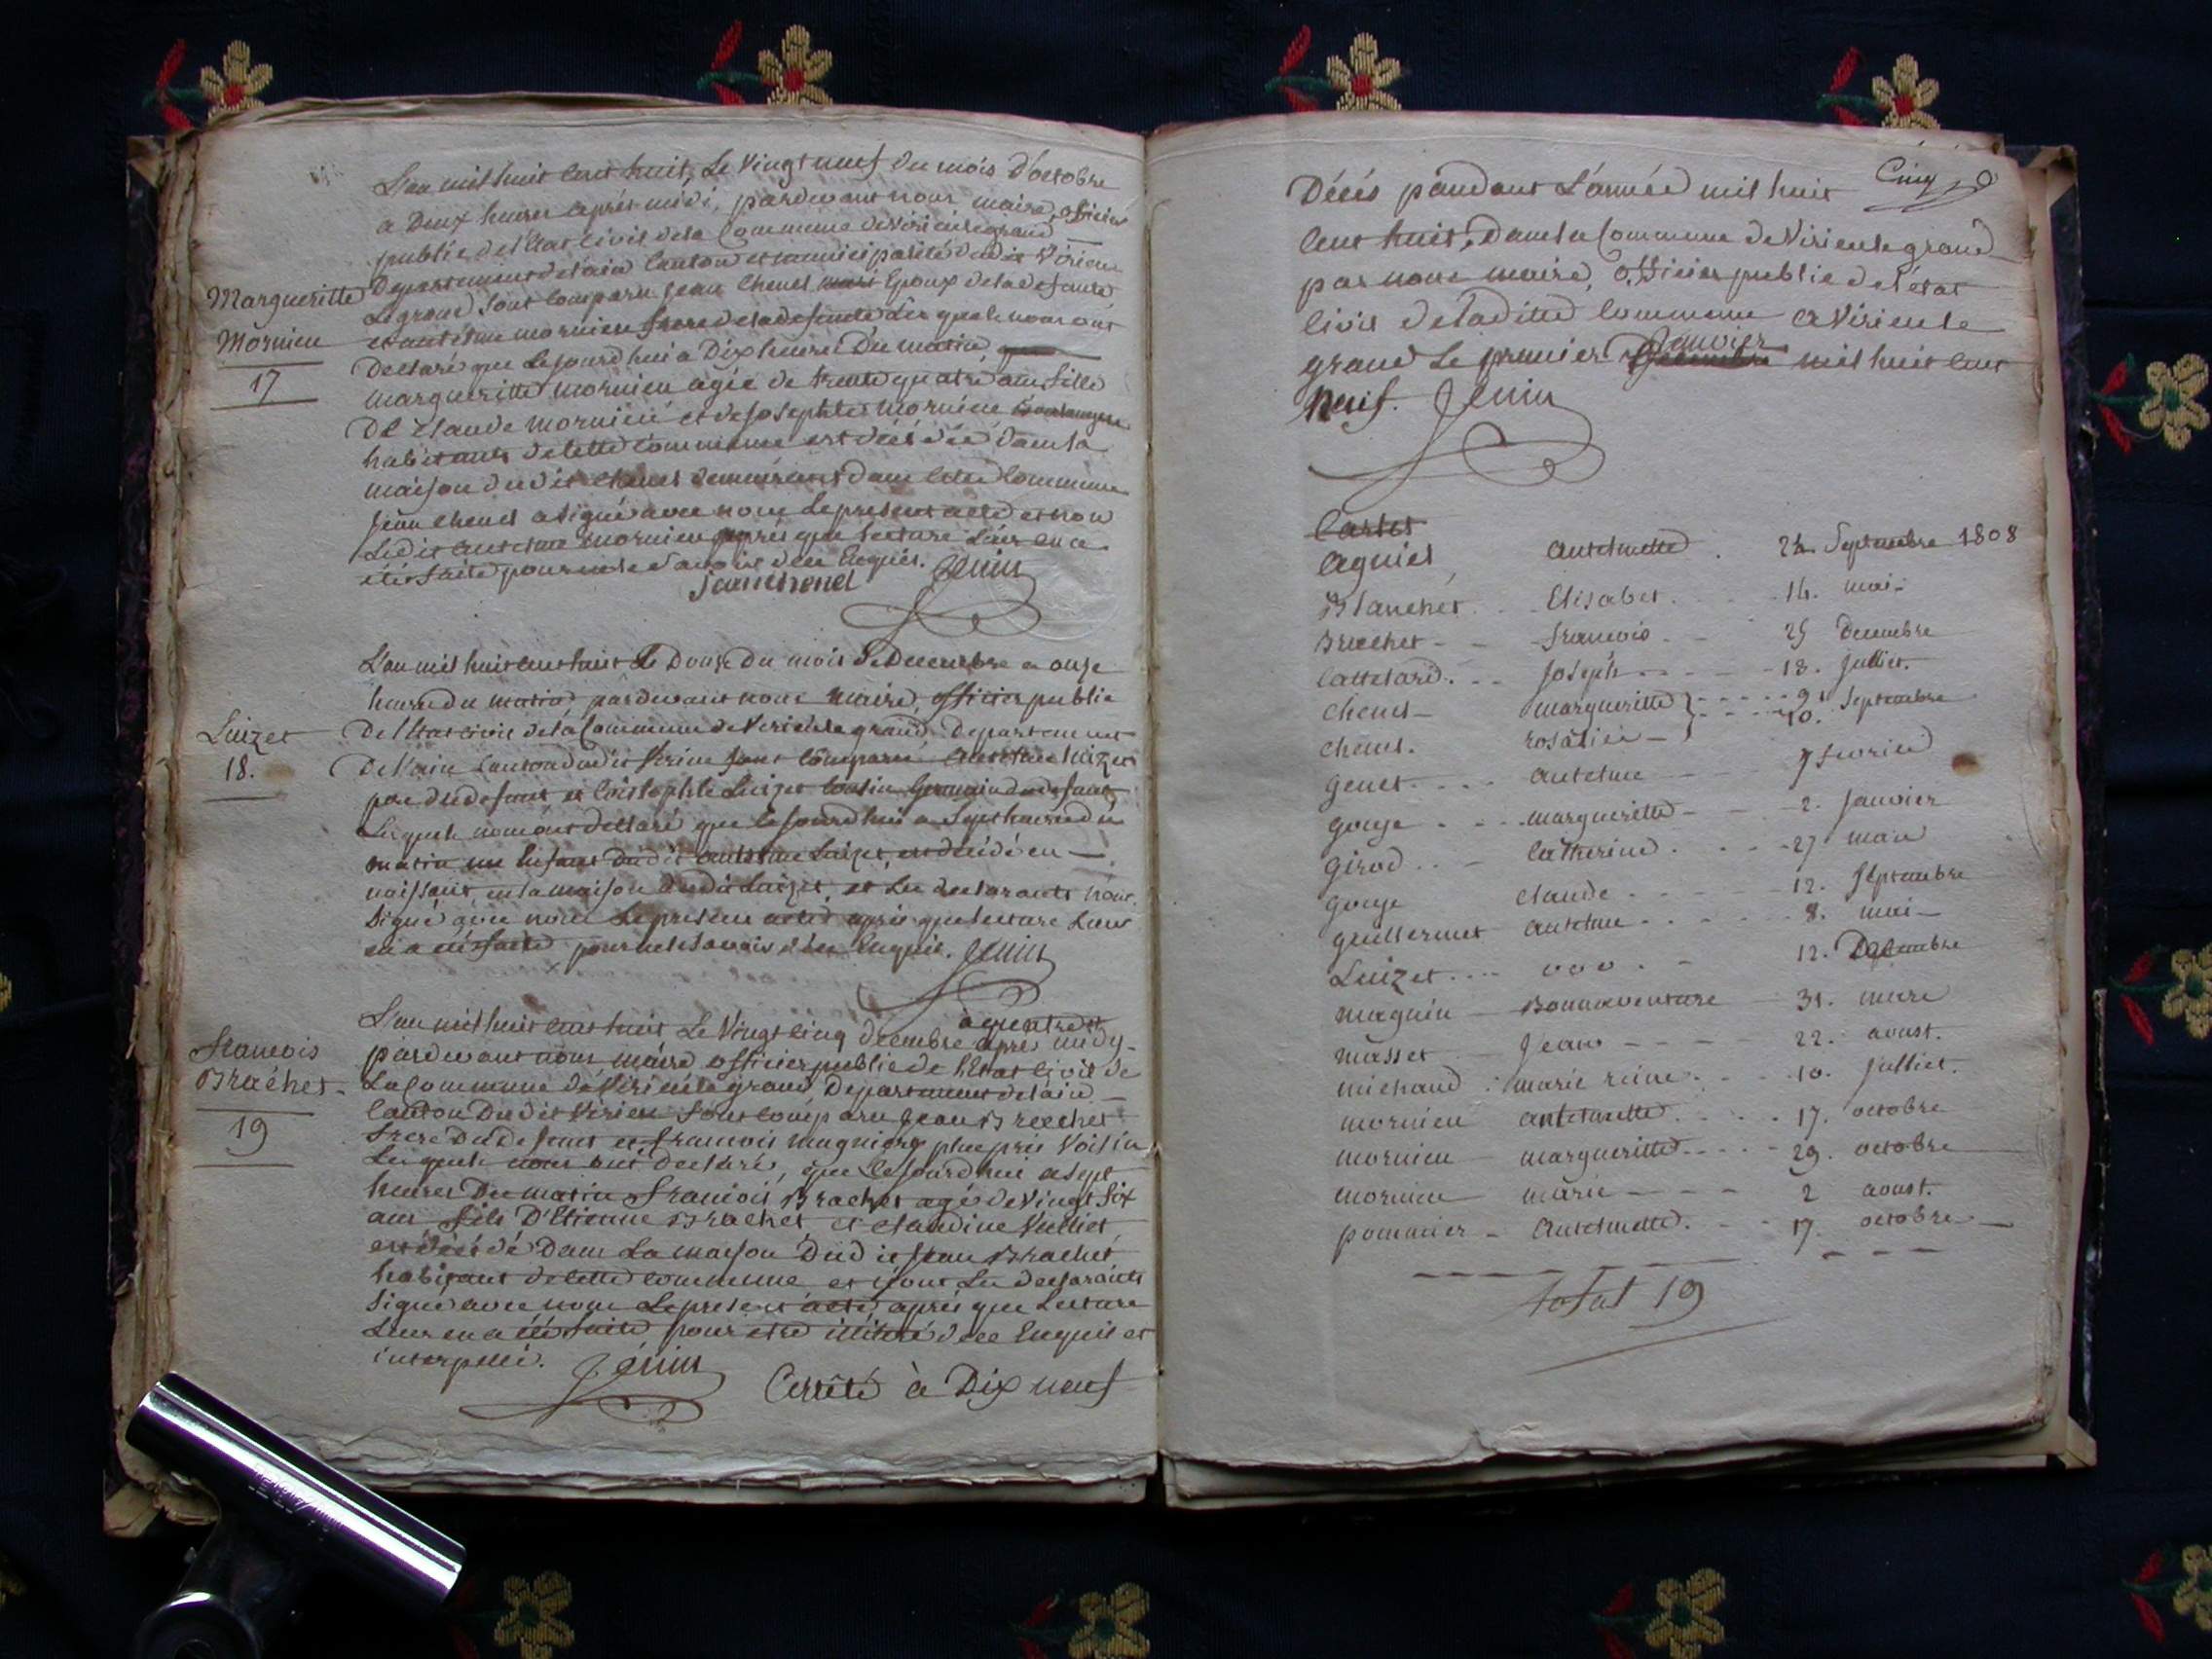 L'an mil huit cent huit, Le Vingt neuf du mois d'octobre
a Deux heures après midi, pardevant nous maire, officier
public de l'Etat Civil de la Commune de Virieu le grand
Departement de l'ain Canton et municipalité dudit Virieu
Margueritte
Le grand sont Comparu jean Chenel Epoux de la defunte
Mornieu
et antelme mornieu frere de la defunte Les quels nous ont
17
Declaré que Cejourd'hui a Dix heures Du matin
margueritte mornieu agée de trente quatre ans fille
De Claude mornieu et de josephte mornieu
habitants de Cette Commune est décédée dans la
maison dudit Chenel demeurant dans Cette Commune
jean Chenel a signé avec nous Le present acte et non
Ledit antelme mornieu après que lecture Leur en a
été faite pour ne le savoir de ce Enquis. Jenin
jean chenel
L'an mil huit cent huit Le Douze Du mois De Decembre a onze
heures du matin pardevant nous maire, officier public
De l'Etat civil de la Commune de Virieu le grand, Departement
Luizet
18.
De l'ain Canton dudit Virieu sont Comparu antelme Luizet
pere du defunt et Cristophle Luizet Cousin Germain du defunt
Les quels nous ont declaré que Cejourd'hui a sept heures du
matin un Enfant dudit antelme Luizet, est décédé en
naissant en la maison dudit Luizet, et Les declarants n'ont
signé avec nous Le present acte après que lecture Leur
en a été faite pour ne le savoir de ce Enquis. Jenin
à quatre
L'an mil huit cent huit Le Vingt cinq décembre après midy
francois
pardevant nous maire officier public de l'Etat Civil de
Brachet
La Commune de Virieu le grand Departement de l'ain
19
Canton Dudit Virieu sont Comparu jean Brachet
frere Du defunt et francois plus près Voisin
Les quels nous ont declaré, que Cejourd'hui a sept
heures Du matin francois Brachet agé de Vingt six
ans fils D'Etienne Brachet et Claudine Vulliet
est décédé Dans La maison Dudit jean Brachet
habitant de Cette Commune et n'ont Les declarants
signé avec nous Le present acte, après que Lecture
Leur en a été faite pour etre illitéré de ce Enquis et
interpellé. Jenin
à Dix neuf
Cinq
Décés pandant L'année mil huit
Cent huit, Dans la Commune de Virieu le grand
par nous maire, officier public de l'état
Civil De la ditte Commune a Virieu le
Janvier
grand Le premier mil huit cent
Neuf. Jenin
agniel antelmette 24 Septembre 1808
Blanchet Elisabet 14. mai
Brachet francois 25 Decembre
Cattelard joseph 13. juillet.
Chenel margueritte 9 Septembre
Chenel. rosalie 10.
genet antelme 7 fevrier
gouje margueritte 2. janvier
girod Catherine 27 mars
gouje claude 12. Septembre
guillermet antelme 8. mai
Luizet ooo 12. Decembre
magnin Bonnaventure 31. mars
masset jean 22. aoust.
michaud marie reine 10. juilliet.
mornieu antelmette 17. octobre
mornieu margueritte 29. octobre
mornieu marie 2 aoust.
pommier antelmette. 17. octobre
total 19